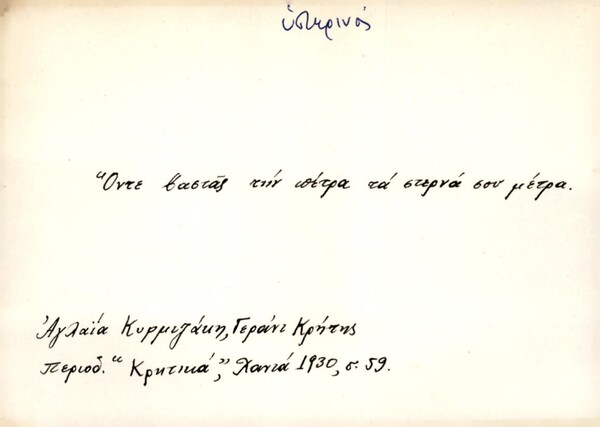 ὑστερινός
Ὅντε βαστᾶς τήν πέτρα τά στερνά σου μέτρα.
Ἀγλαΐα Κυρμιζάκη, Γεράνι Κρήτης
Περιοδ. "Κρητικά", Χανιά 1930, σ. 59.